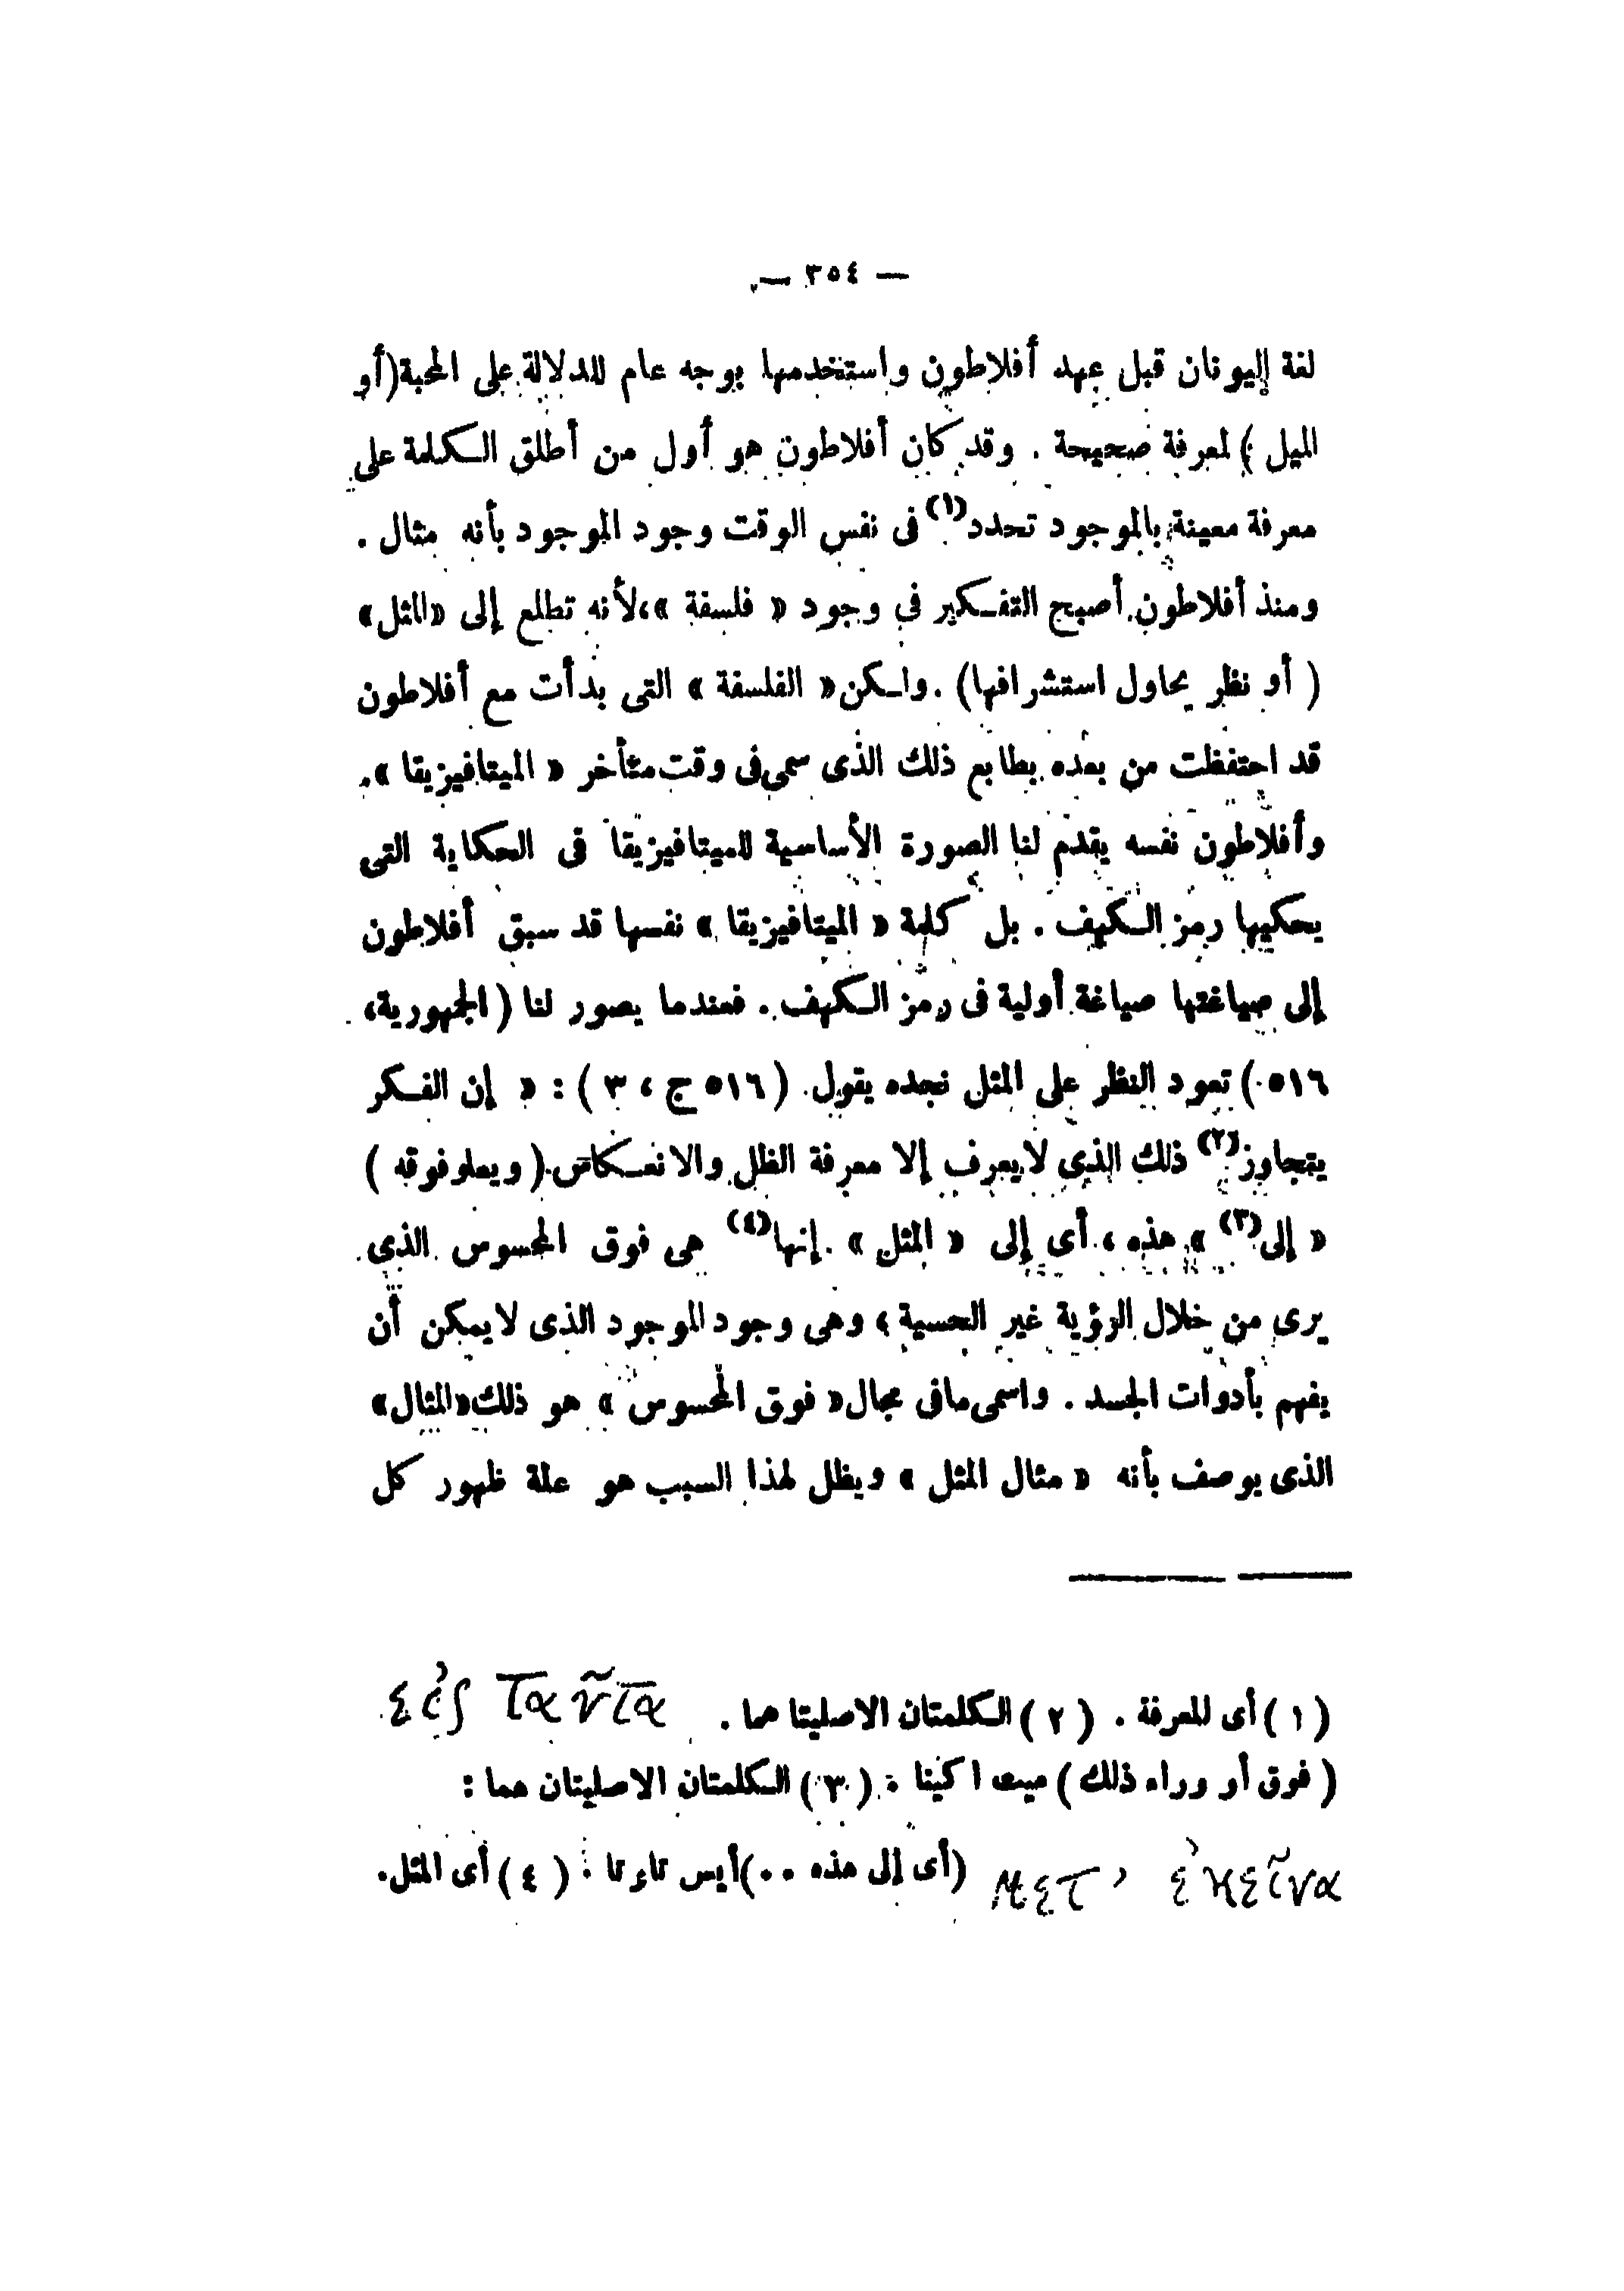 — ٣٥٤ —
لغة اليونان قبل عهد أفلاطون واستخدمها بوجه عام للدلالة على المحبة (أو
الميل) لمعرفة صحيحة . وقد كان أفلاطون هو أول من أطلق الكلمة على
معرفة معينة بالموجود تحدد(١) فى نفس الوقت وجود الموجود بأنه مثال .
ومنذ أفلاطون أصبح التفكير فى وجود « فلسفة »، لأنه تطلع إلى «المثل»
( أو نظر يحاول استشرافها) . ولكن « الفلسفة » التى بدأت مع أفلاطون
قد احتفظت من بعده بطابع ذلك الذى سمى فى وقت متأخر « الميتافيزيقا ».
وأفلاطون نفسه يقدم لنا الصورة الأساسية للميتافيزيقا فى الحكاية التى
يحكيها رمز الكهف . بل كلمة « الميتافيزيقا » نفسها قد سبق أفلاطون
إلى صياغتها صياغة أولية فى رمز الكهف . فعندما يصور لنا ( الجمهورية،
٥١٦ ) تعود النظر على المثل نجده يقول ( ٥١٦ ج ، ٣ ) : « إن الفكر
يتجاوز(٢) ذلك الذى لا يعرف إلا معرفة الظل والانعكاس ( ويعلو فوقه )
« إلى(٣) » هذه ، أى إلى « المثل » . إنها(٤) هى فوق المحسوس الذى
يرى من خلال الرؤية غير الحسية ، وهى وجود الموجود الذى لا يمكن أن
يفهم بأدوات الجسد . واسمى مافى مجال « فوق المحسوس » هو ذلك «المثال»
الذى يوصف بأنه « مثال المثل » ويظل لهذا السبب هو علة ظهور كل
(١) أى للمعرفة . (٢) الكلمتان الاصليتا هما . εἰς ταῦτα
( فوق أو وراء ذلك ) ميت اكينا . (٣) الكلمتان الاصليتان هما :
μετ' ἐκεῖνα (أى إلى هذه ..) أيس تاوتا . (٤) أى المثل.